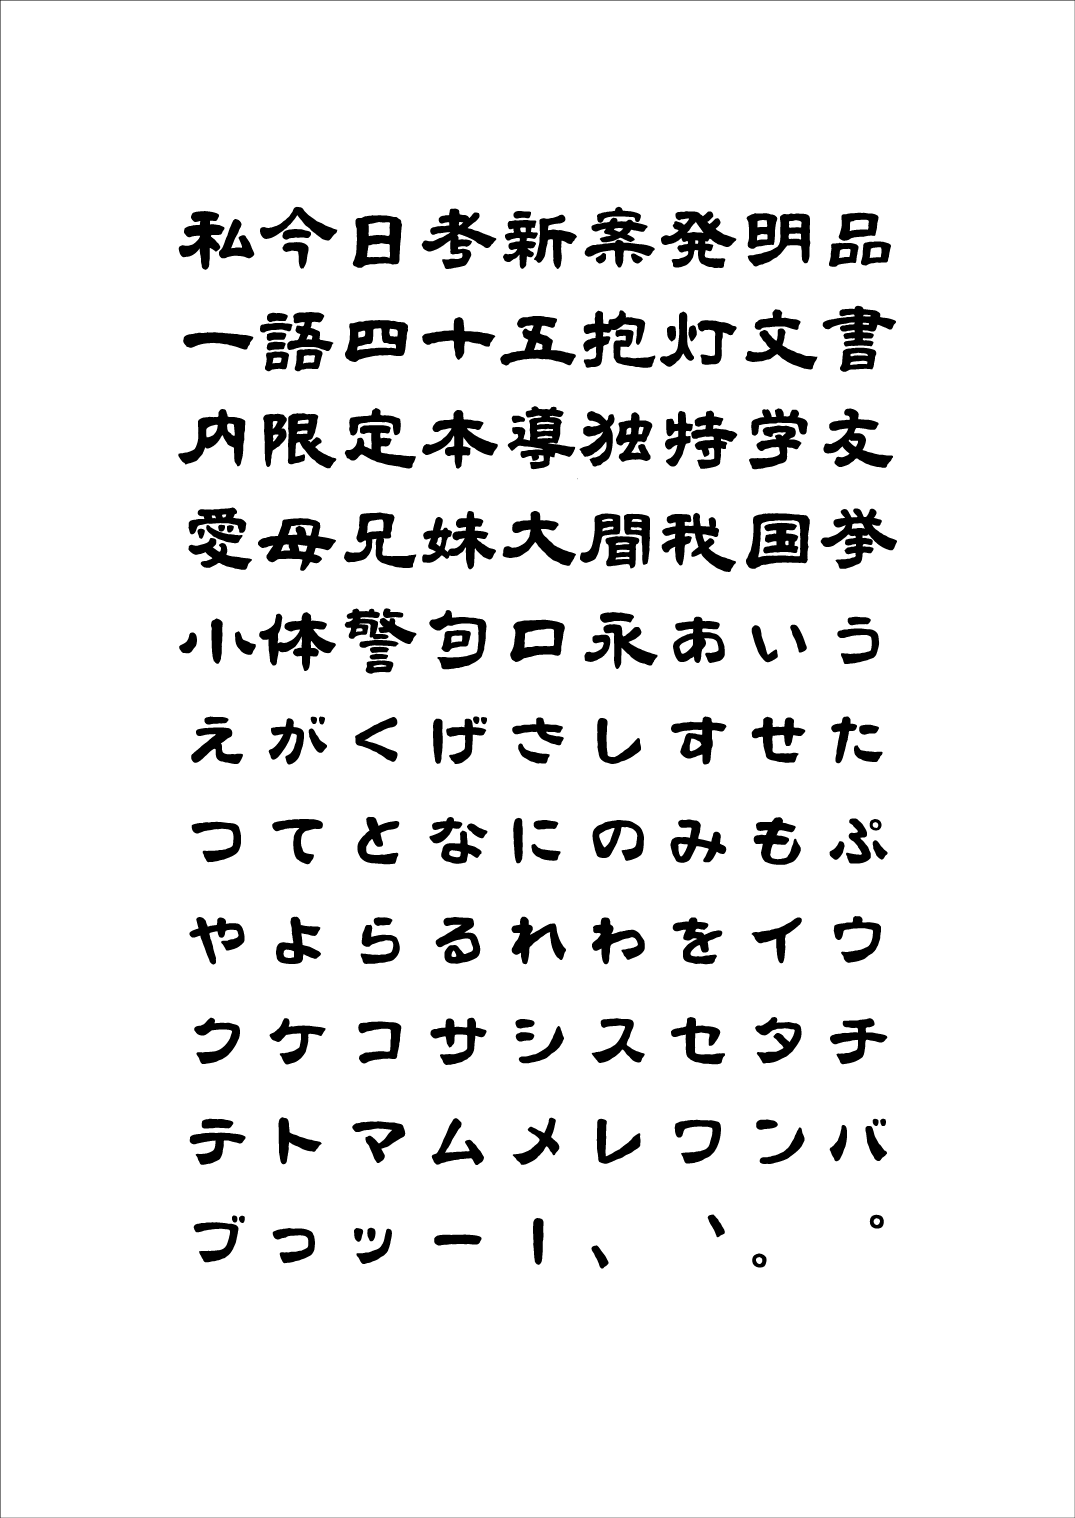 私今日考新案発明品
一語四十五抱灯文書
内限定本導独特学友
愛母兄妹大間我国挙
小体警句口永あいう
えがくげさしすせた
つてとなにのみもぷ
やよらるれわをイウ
クケコサシスセタチ
テトマムメレワンバ
ブっッー｜、、。。